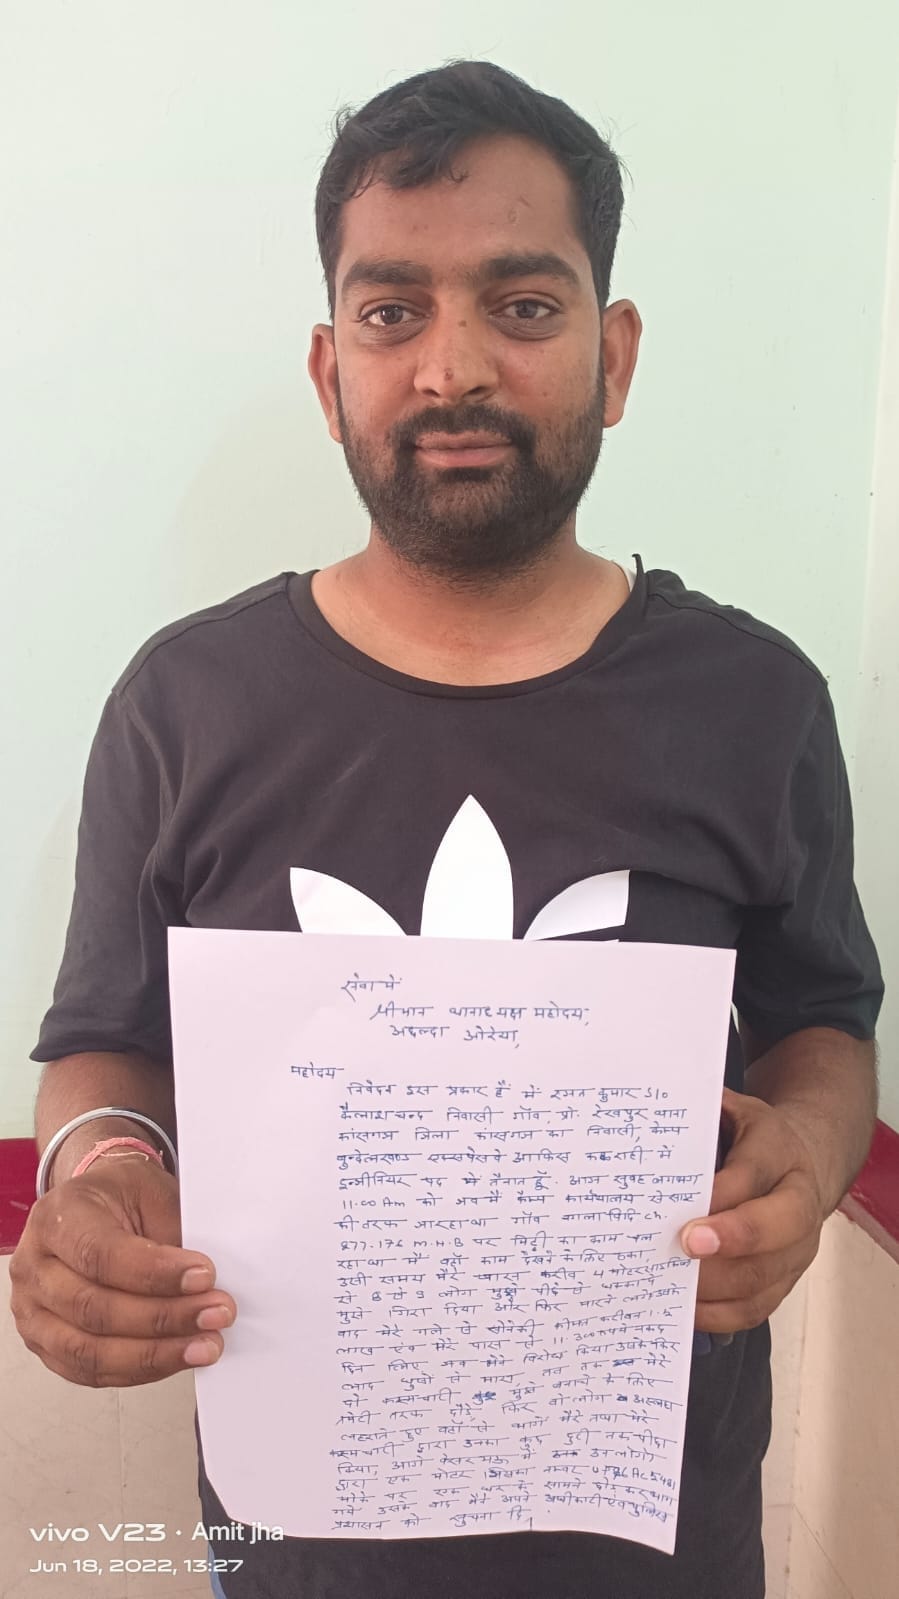 सेवा में
श्रीमान थानाध्यक्ष महोदय,
अछल्दा औरैया,
महोदय
निवेदन इस प्रकार है में रमन कुमार S/o
कैलाश चन्द निवासी गाँव, प्रो. रेखपुर थाना
कांसगज जिला कासगज का निवासी, केम्प
बुन्देलखण्ड एक्सप्रेसवे आफिस ककराही में
इन्जीनियर पद में तैनात हूँ. आज सुबह लगभग
11.00 Am को जब मैं कैम्प कार्यालय से साइट
की तरफ जा रहा था गाँव ch.
277.176 M.H.B पर मिट्टी का काम चल
रहा था मैं वहाँ काम देखने के लिए रुका,
उसी समय मेरे पास करीव 4 मोटरसाइकिल
से 8 से 9 लोग मुझे पीछे से धक्का दे
मुझे गिरा दिया और फिर मारने लगे, उसके
वाद मेरे गले से सोनेकी कीमत करीवन 1.5
लाख एंव मेरे पास से 11,300 रुपये नकद
छिन लिए जब मेने विरोध किया उसके फिर
लात घुसो से मारा, तव तक मेरे
दो कर्मचारी मुझे बचाने के लिए
मेरी तरफ दौड़े, फिर वो लोग असलहा
लहराते हुए वहाँ से भागे मैंने तथा मेरे
कर्मचारी द्वारा उनका कुछ दुरी तक पीछा
किया, आगे में उन लोगो
द्वारा एक मोटर जिसका नम्बर
मोके पर एक घर के सामने छोड़ कर भाग
गये उसके वाद मैने अपने अधीकारी एंव पुलिस
प्रशासन को सुचना दि,
vivo V23 · Amit jha
Jun 18, 2022, 13:27